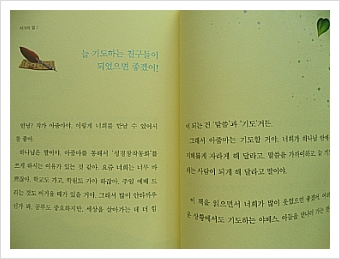 작가의 말
늘 기도하는 친구들이
되었으면 좋겠어!
안녕? 작가 아줌마야. 이렇게 너희를 만날 수 있어서
참 좋아.
하나님은 말이야, 아줌마를 통해서 '성경창작동화'를
쓰게 하시는 이유가 있는 것 같아. 요즘 너희는 너무 바
쁘잖아. 학교도 가고, 학원도 가야 하잖아. 주일 예배 드
리는 것도 버거울 때가 있을 거야. 그래서 많이 안타까우
신가 봐. 공부도 중요하지만, 세상을 살아가는 데 더 힘
이 되는 건 '말씀'과 '기도'거든.
그래서 아줌마는 기도할 거야. 너희가 하나님 안에
지혜롭게 자라게 해 달라고. 말씀을 가까이하고 늘 기
하는 사람이 되게 해 달라고 말이야.
이 책을 읽으면서 너희가 많이 웃었으면 좋겠어. 어려
운 상황에서도 기도하는 야베스, 아들을 만나러 가는 전